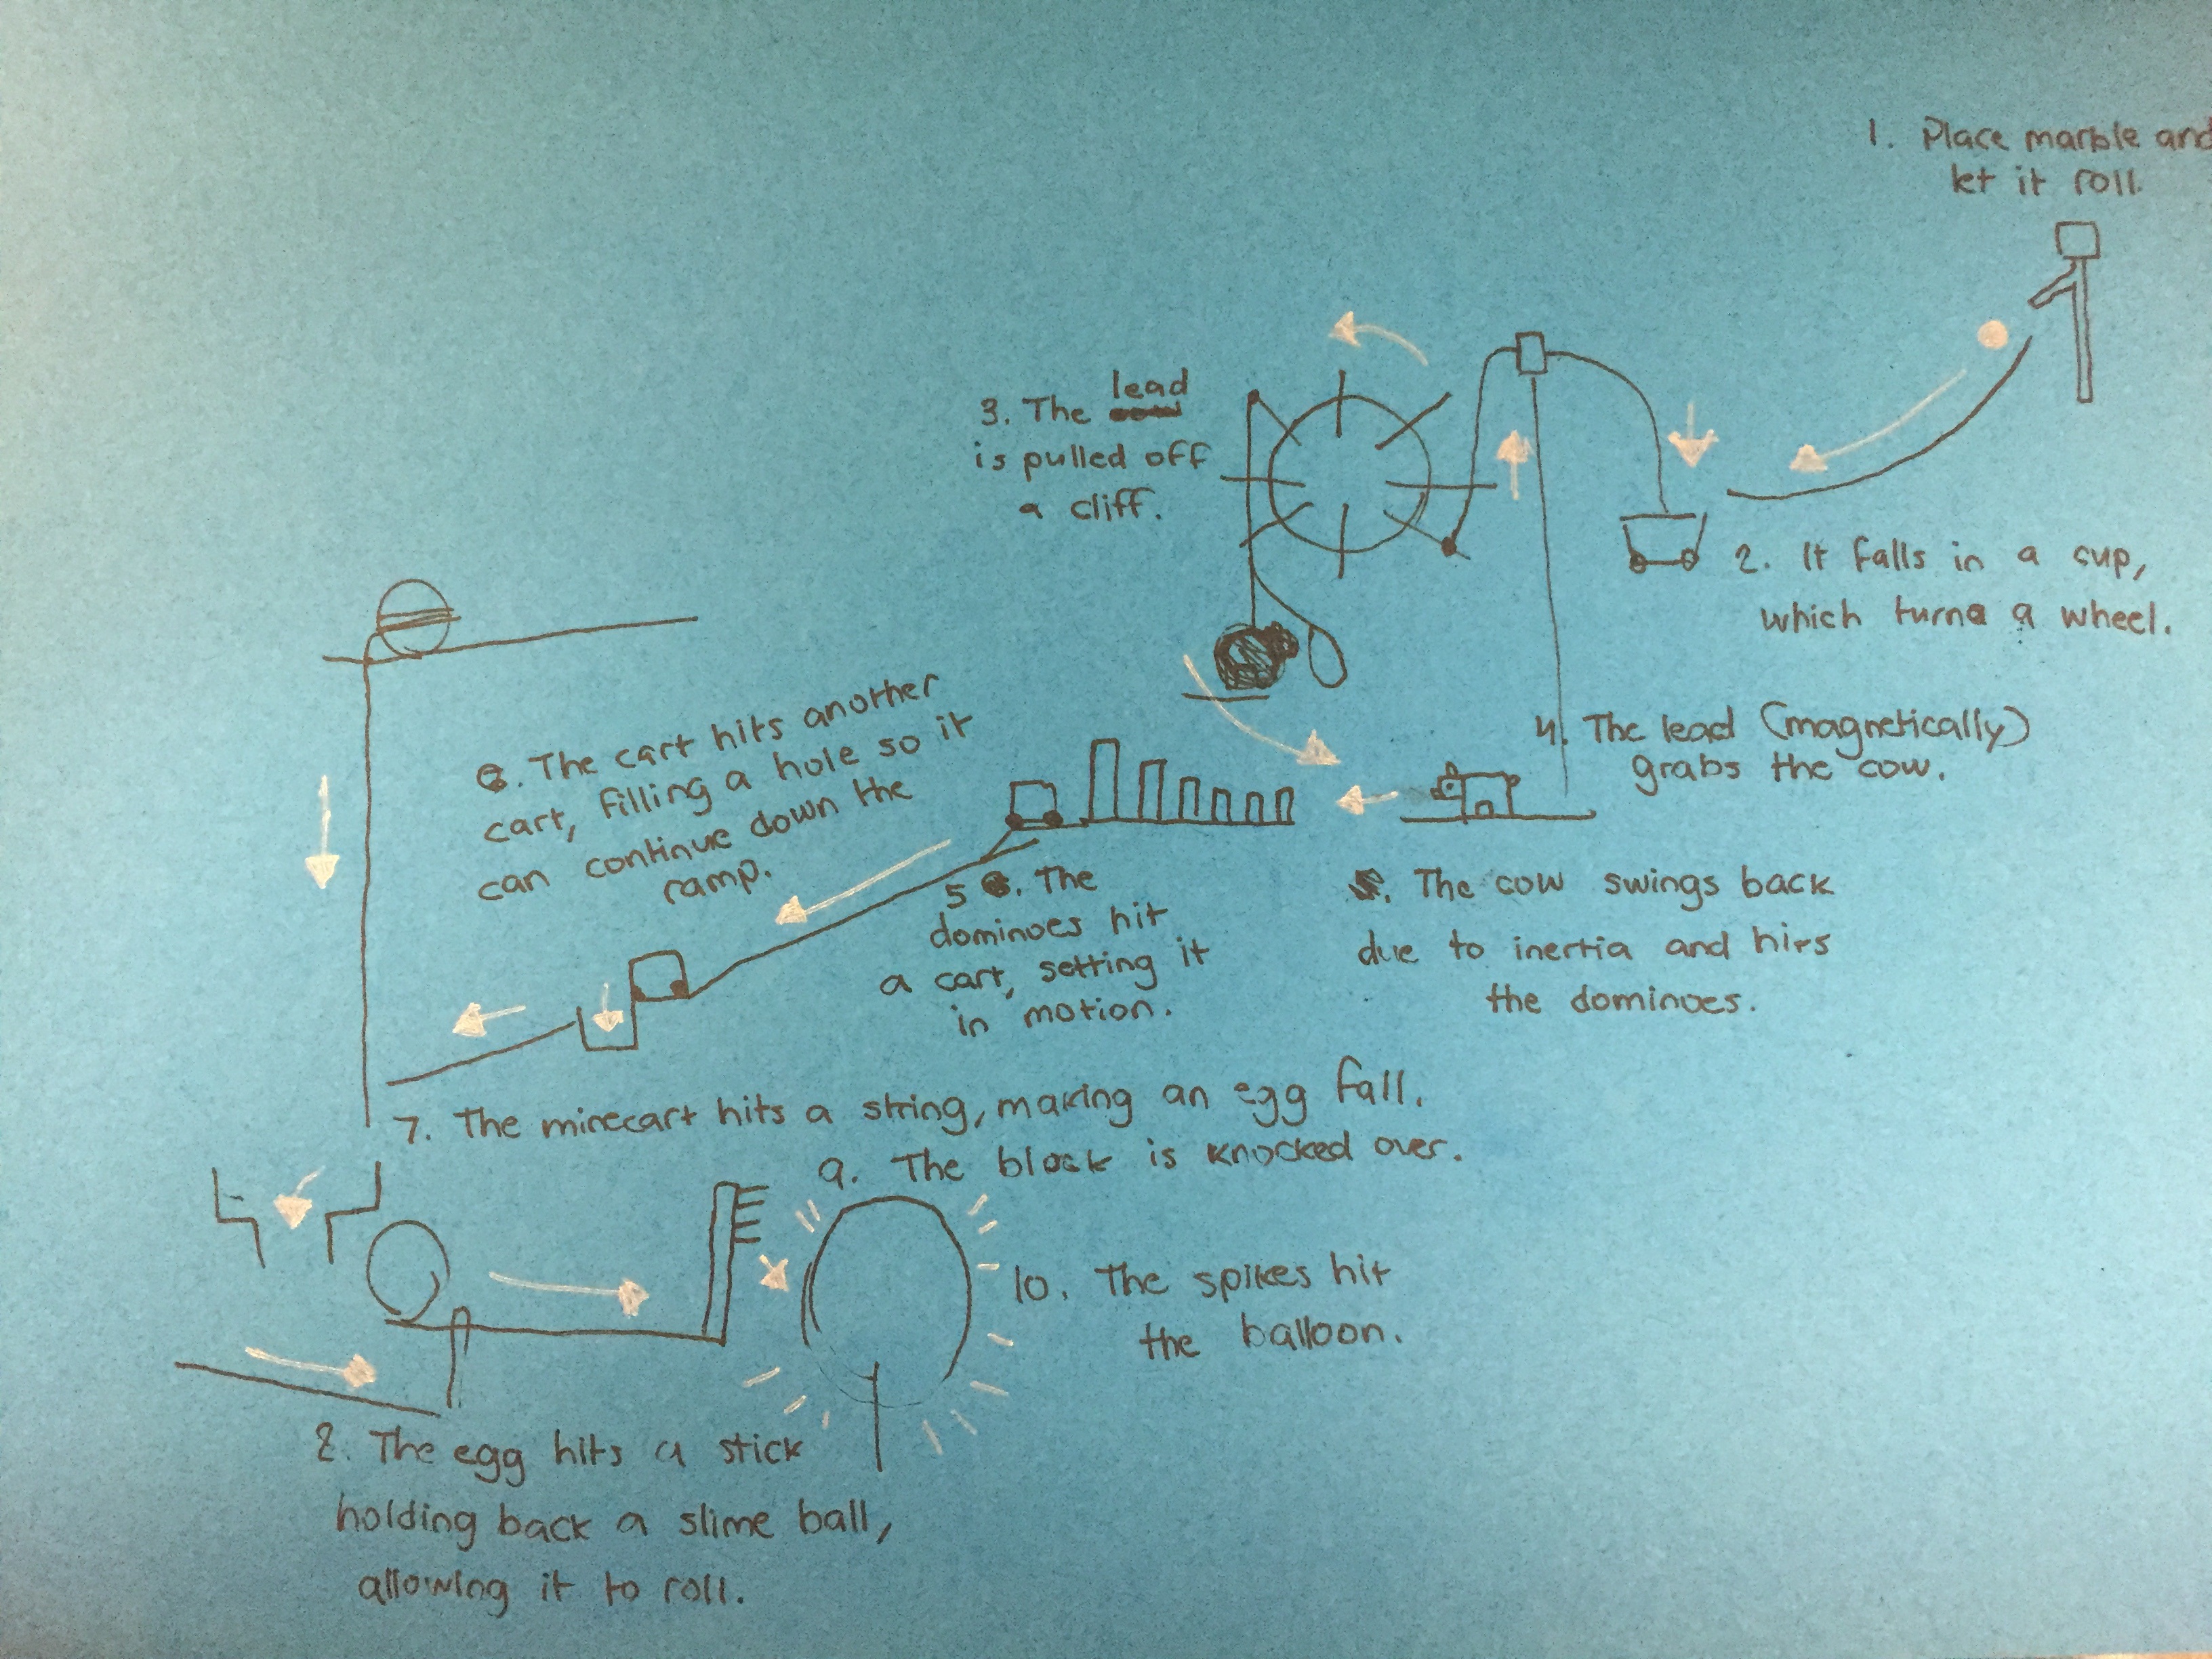 1. Place marble and
let it roll.
2. It falls in a cup,
which turns a wheel.
3. The lead
is pulled off
a cliff.
4. The lead (magnetically)
grabs the cow.
5. The cow swings back
due to inertia and hits
the dominoes.
5 6. The
dominoes hit
a cart, setting it
in motion.
6. The cart hits another
cart, filling a hole so it
can continue down the
ramp.
7. The minecart hits a string, making an egg fall.
8. The egg hits a stick
holding back a slime ball,
allowing it to roll.
9. The block is knocked over.
10. The spikes hit
the balloon.